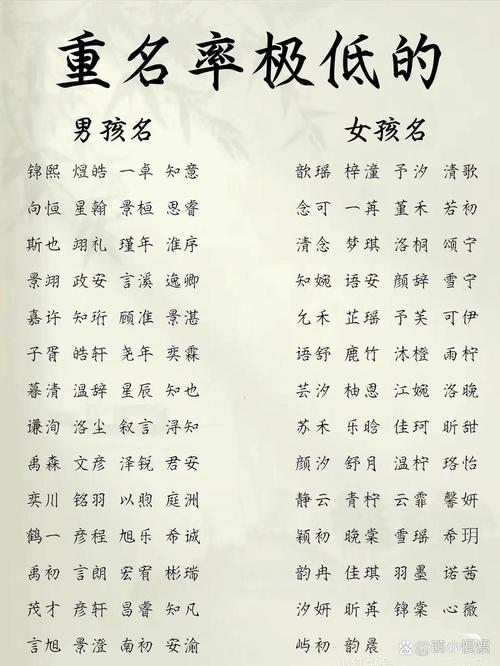 重名率极低的
男孩名 女孩名
锦熙 煜皓 一卓 知意 歆瑶 梓潼 予汐 清歌
向恒 星翰 景桓 思睿 念可 一苒 堇禾 若初
斯也 翊礼 瑾年 淮序 清念 梦琪 洛桐 颂宁
景翊 政安 言溪 逸卿 知婉 语安 颜辞 雪宁
嘉许 知珩 顾准 景湛 允禾 芷瑶 予芙 可伊
子胥 皓轩 尧年 奕霖 语舒 鹿竹 沐橙 雨柠
暮清 温辞 星辰 知也 芸汐 柚恩 江婉 洛晚
谦洵 洛尘 叙言 浔知 苏禾 乐晗 佳珂 昕甜
禹森 文彦 泽锐 君安 颜汐 舒月 温柠 珞怡
奕川 铭羽 以煦 庭洲 静云 青柠 云霏 馨妍
鹤一 彦程 旭乐 希诚 颖初 晚棠 雪瑶 希玥
禹初 言朗 宏宥 彬瑞 韵冉 佳琪 羽墨 诺茜
茂才 彦轩 昌睿 知凡 汐妍 昕苒 锦棠 心薇
言旭 景澄 南初 安渝 屿初 韵晨